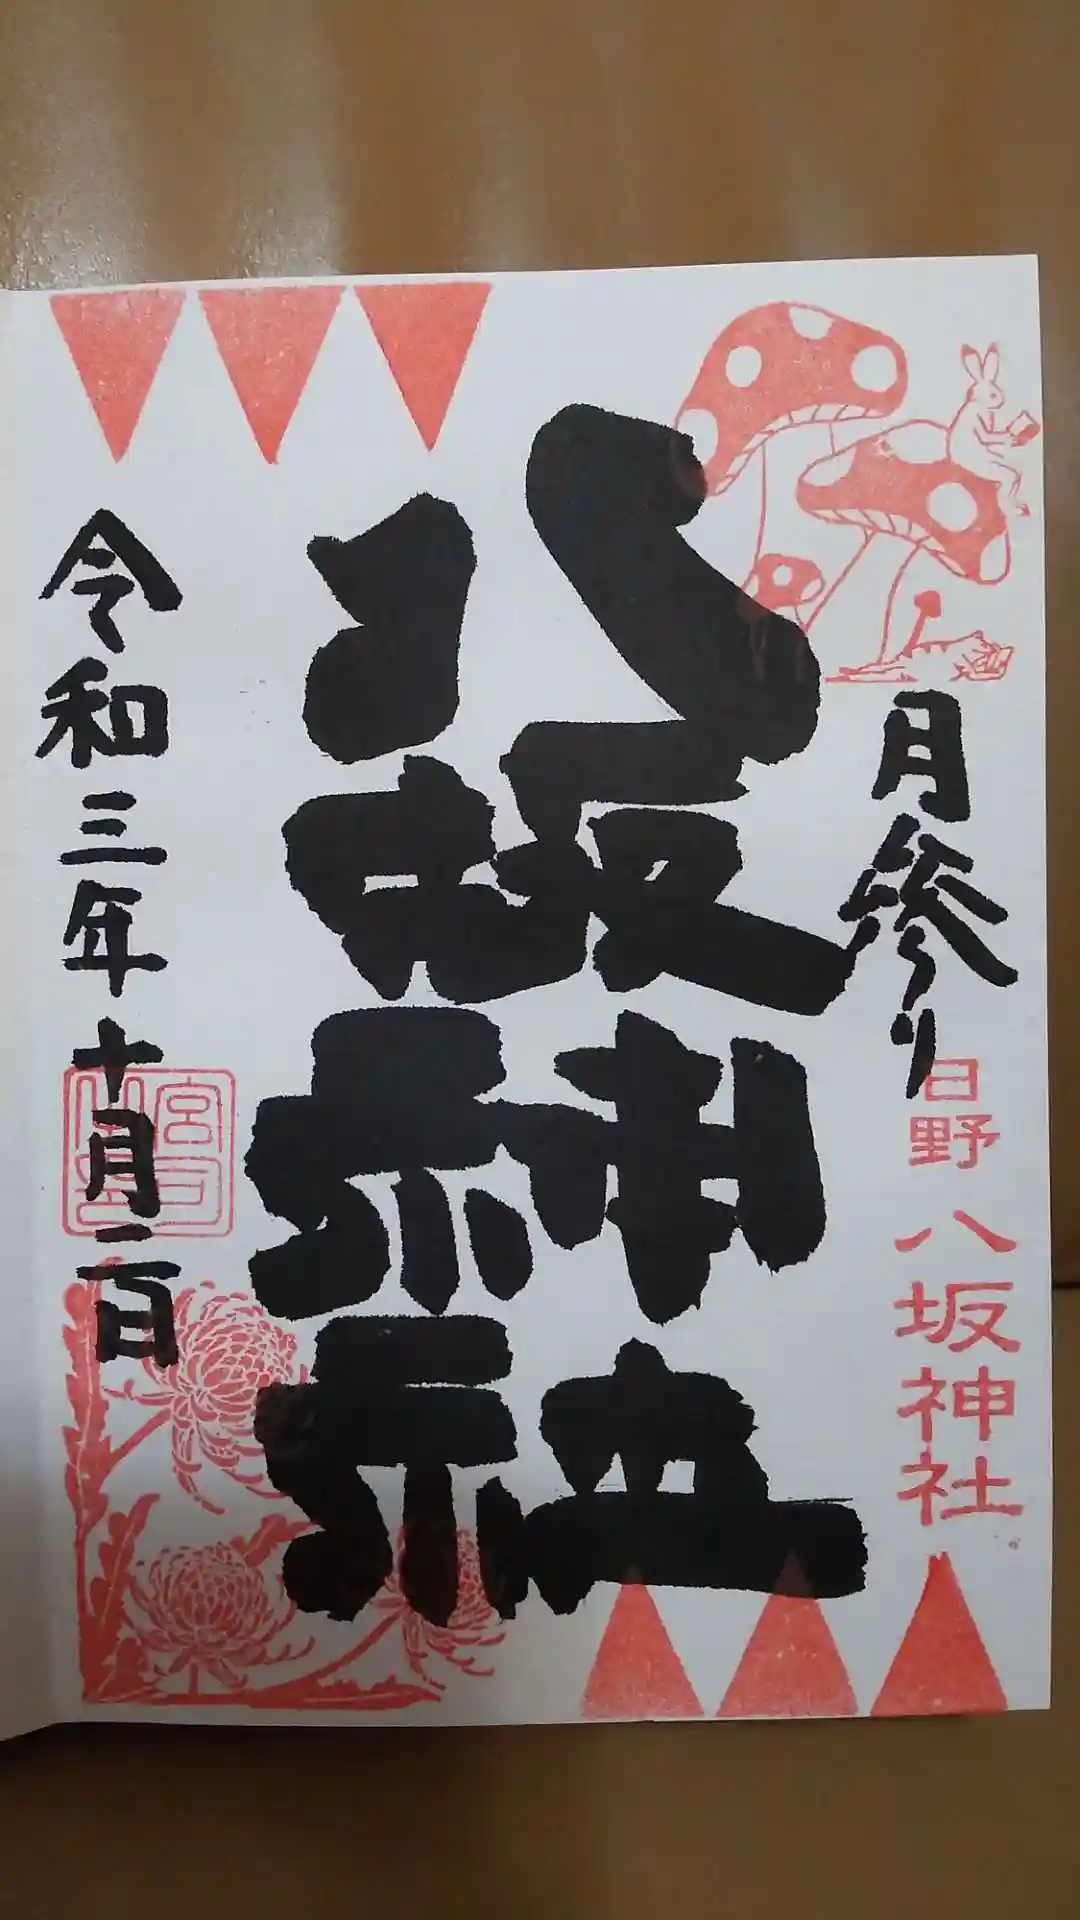 月参り
日野 八坂神社
八坂神社
令和三年十月二日
宮司